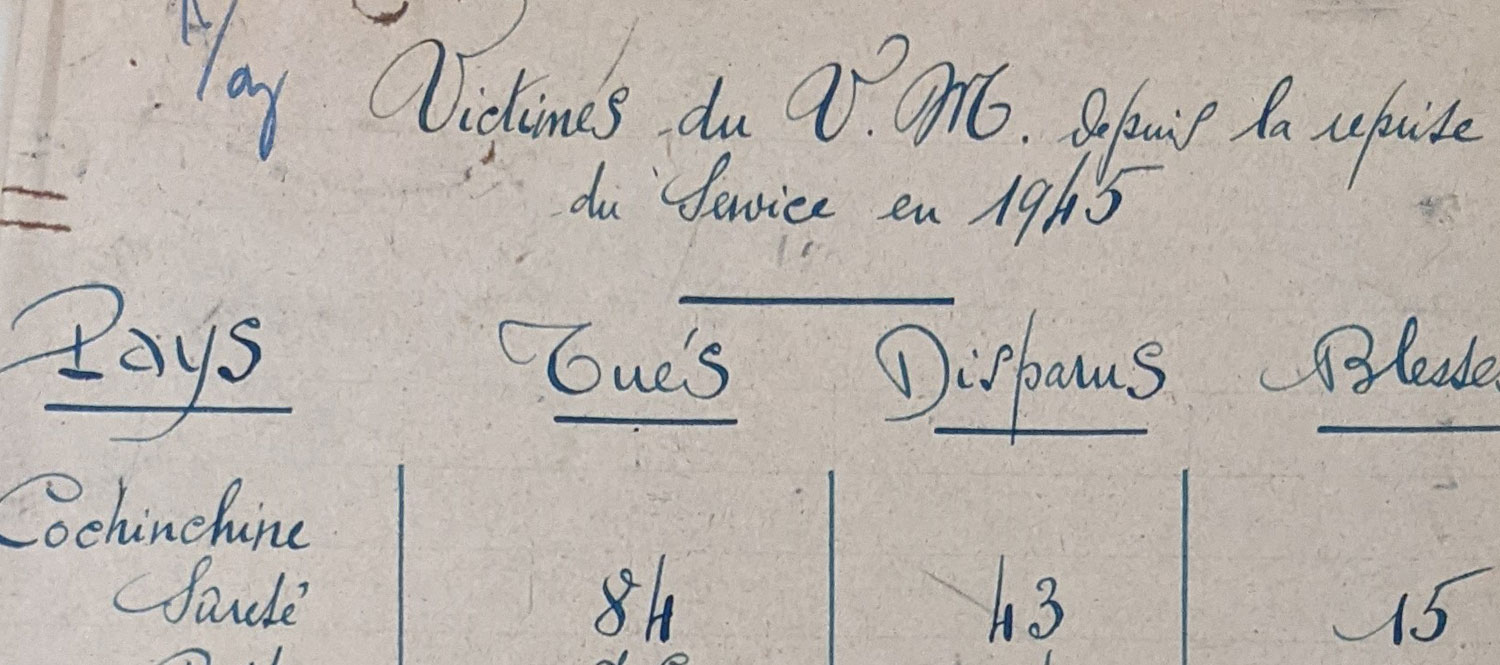 Victimes du V.M. depuis la reprise
du Service en 1945
Pays Tués Disparus Blessé
Cochinchine
Sûreté 84 43 15